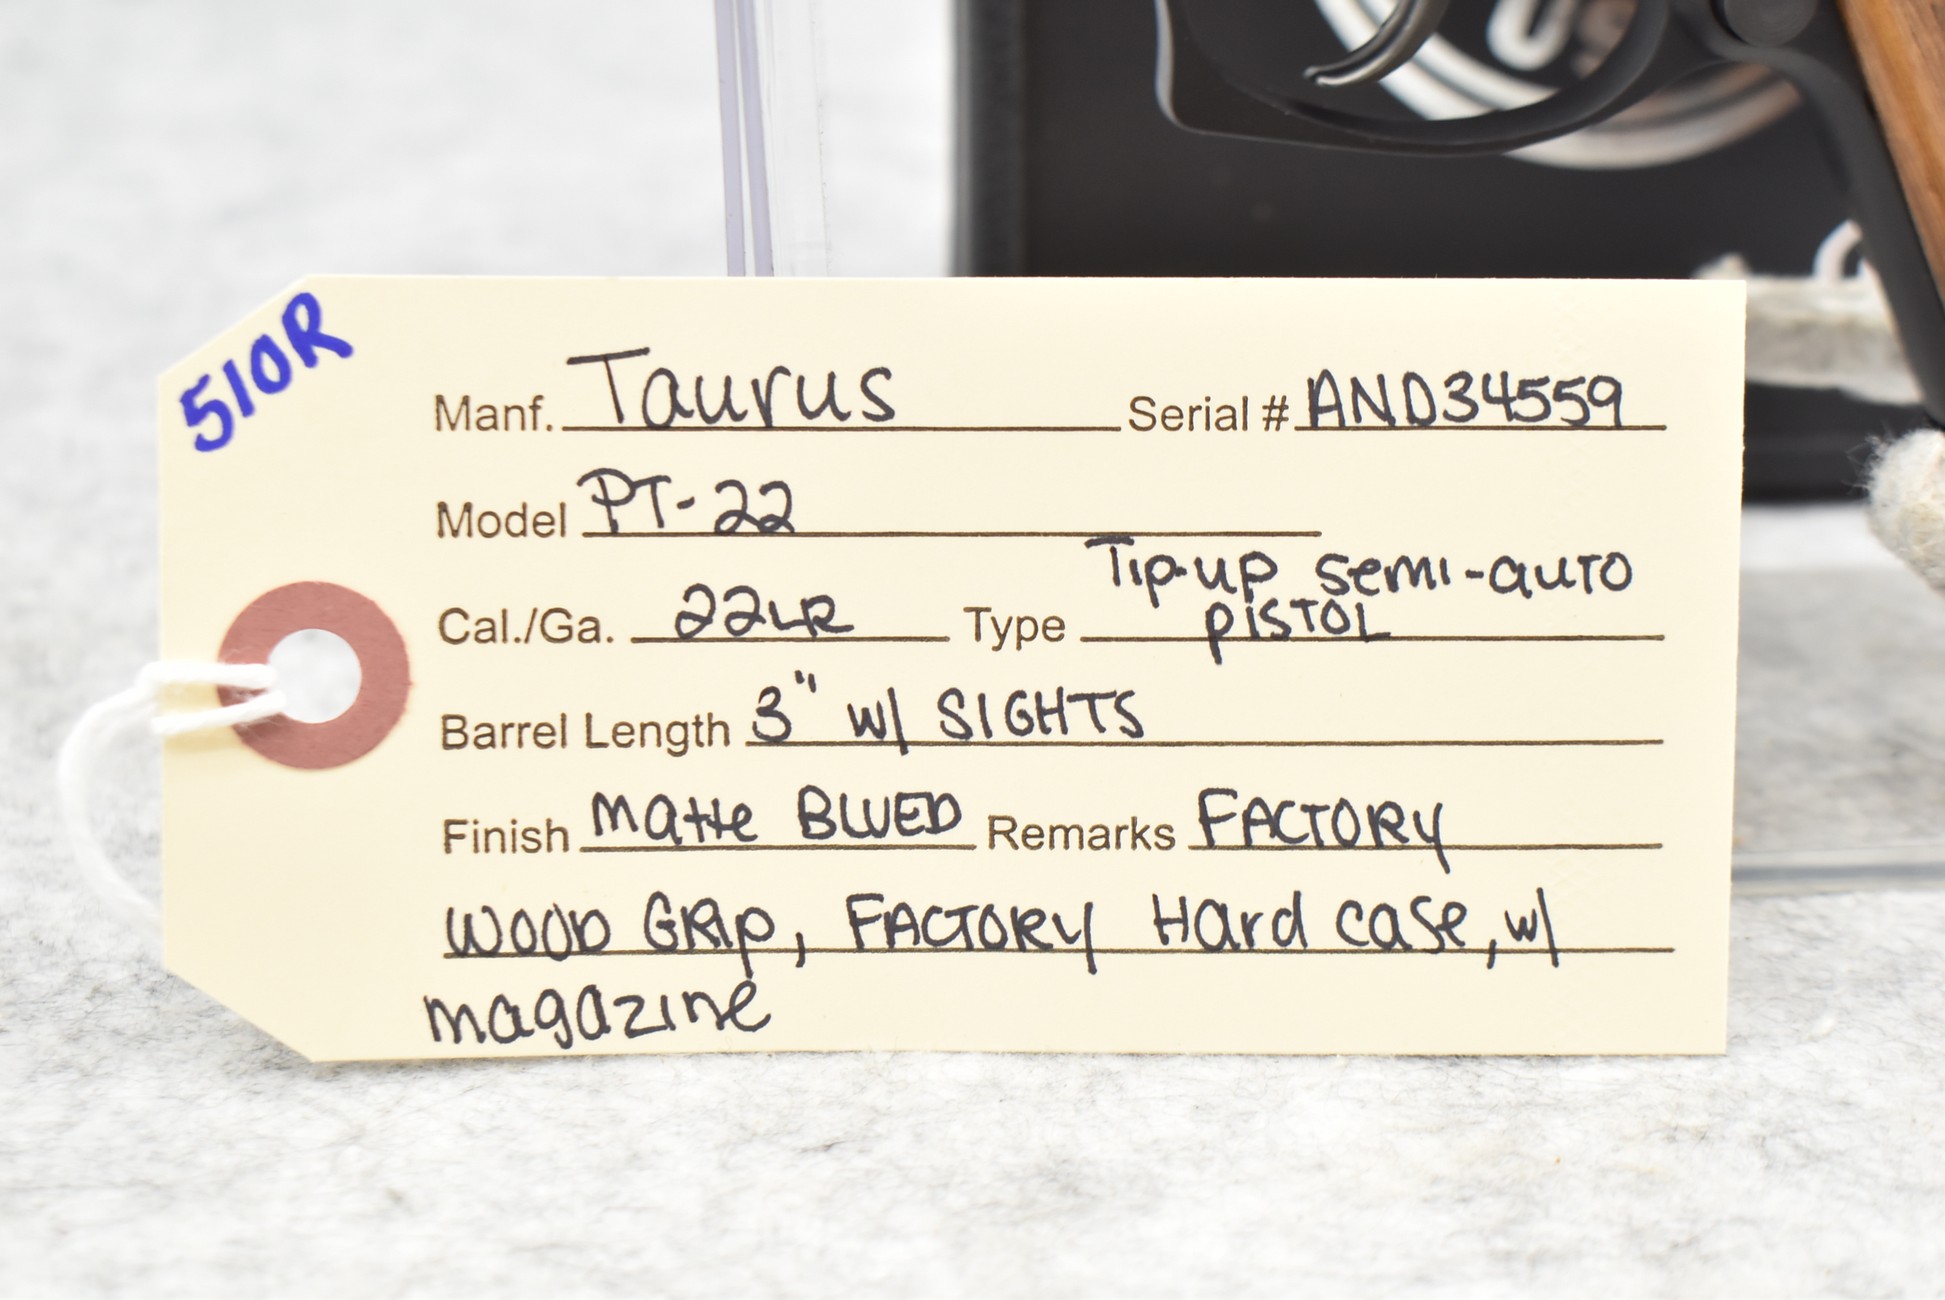 510R
Manf. Taurus Serial # AND34559
Model PT-22
Cal./Ga. 22LR Type Tip-up semi-auto
PISTOL
Barrel Length 3" w/ SIGHTS
Finish Matte BLUED Remarks FACTORY
WOOD GRip, FACTORY Hard case, w/
magazine